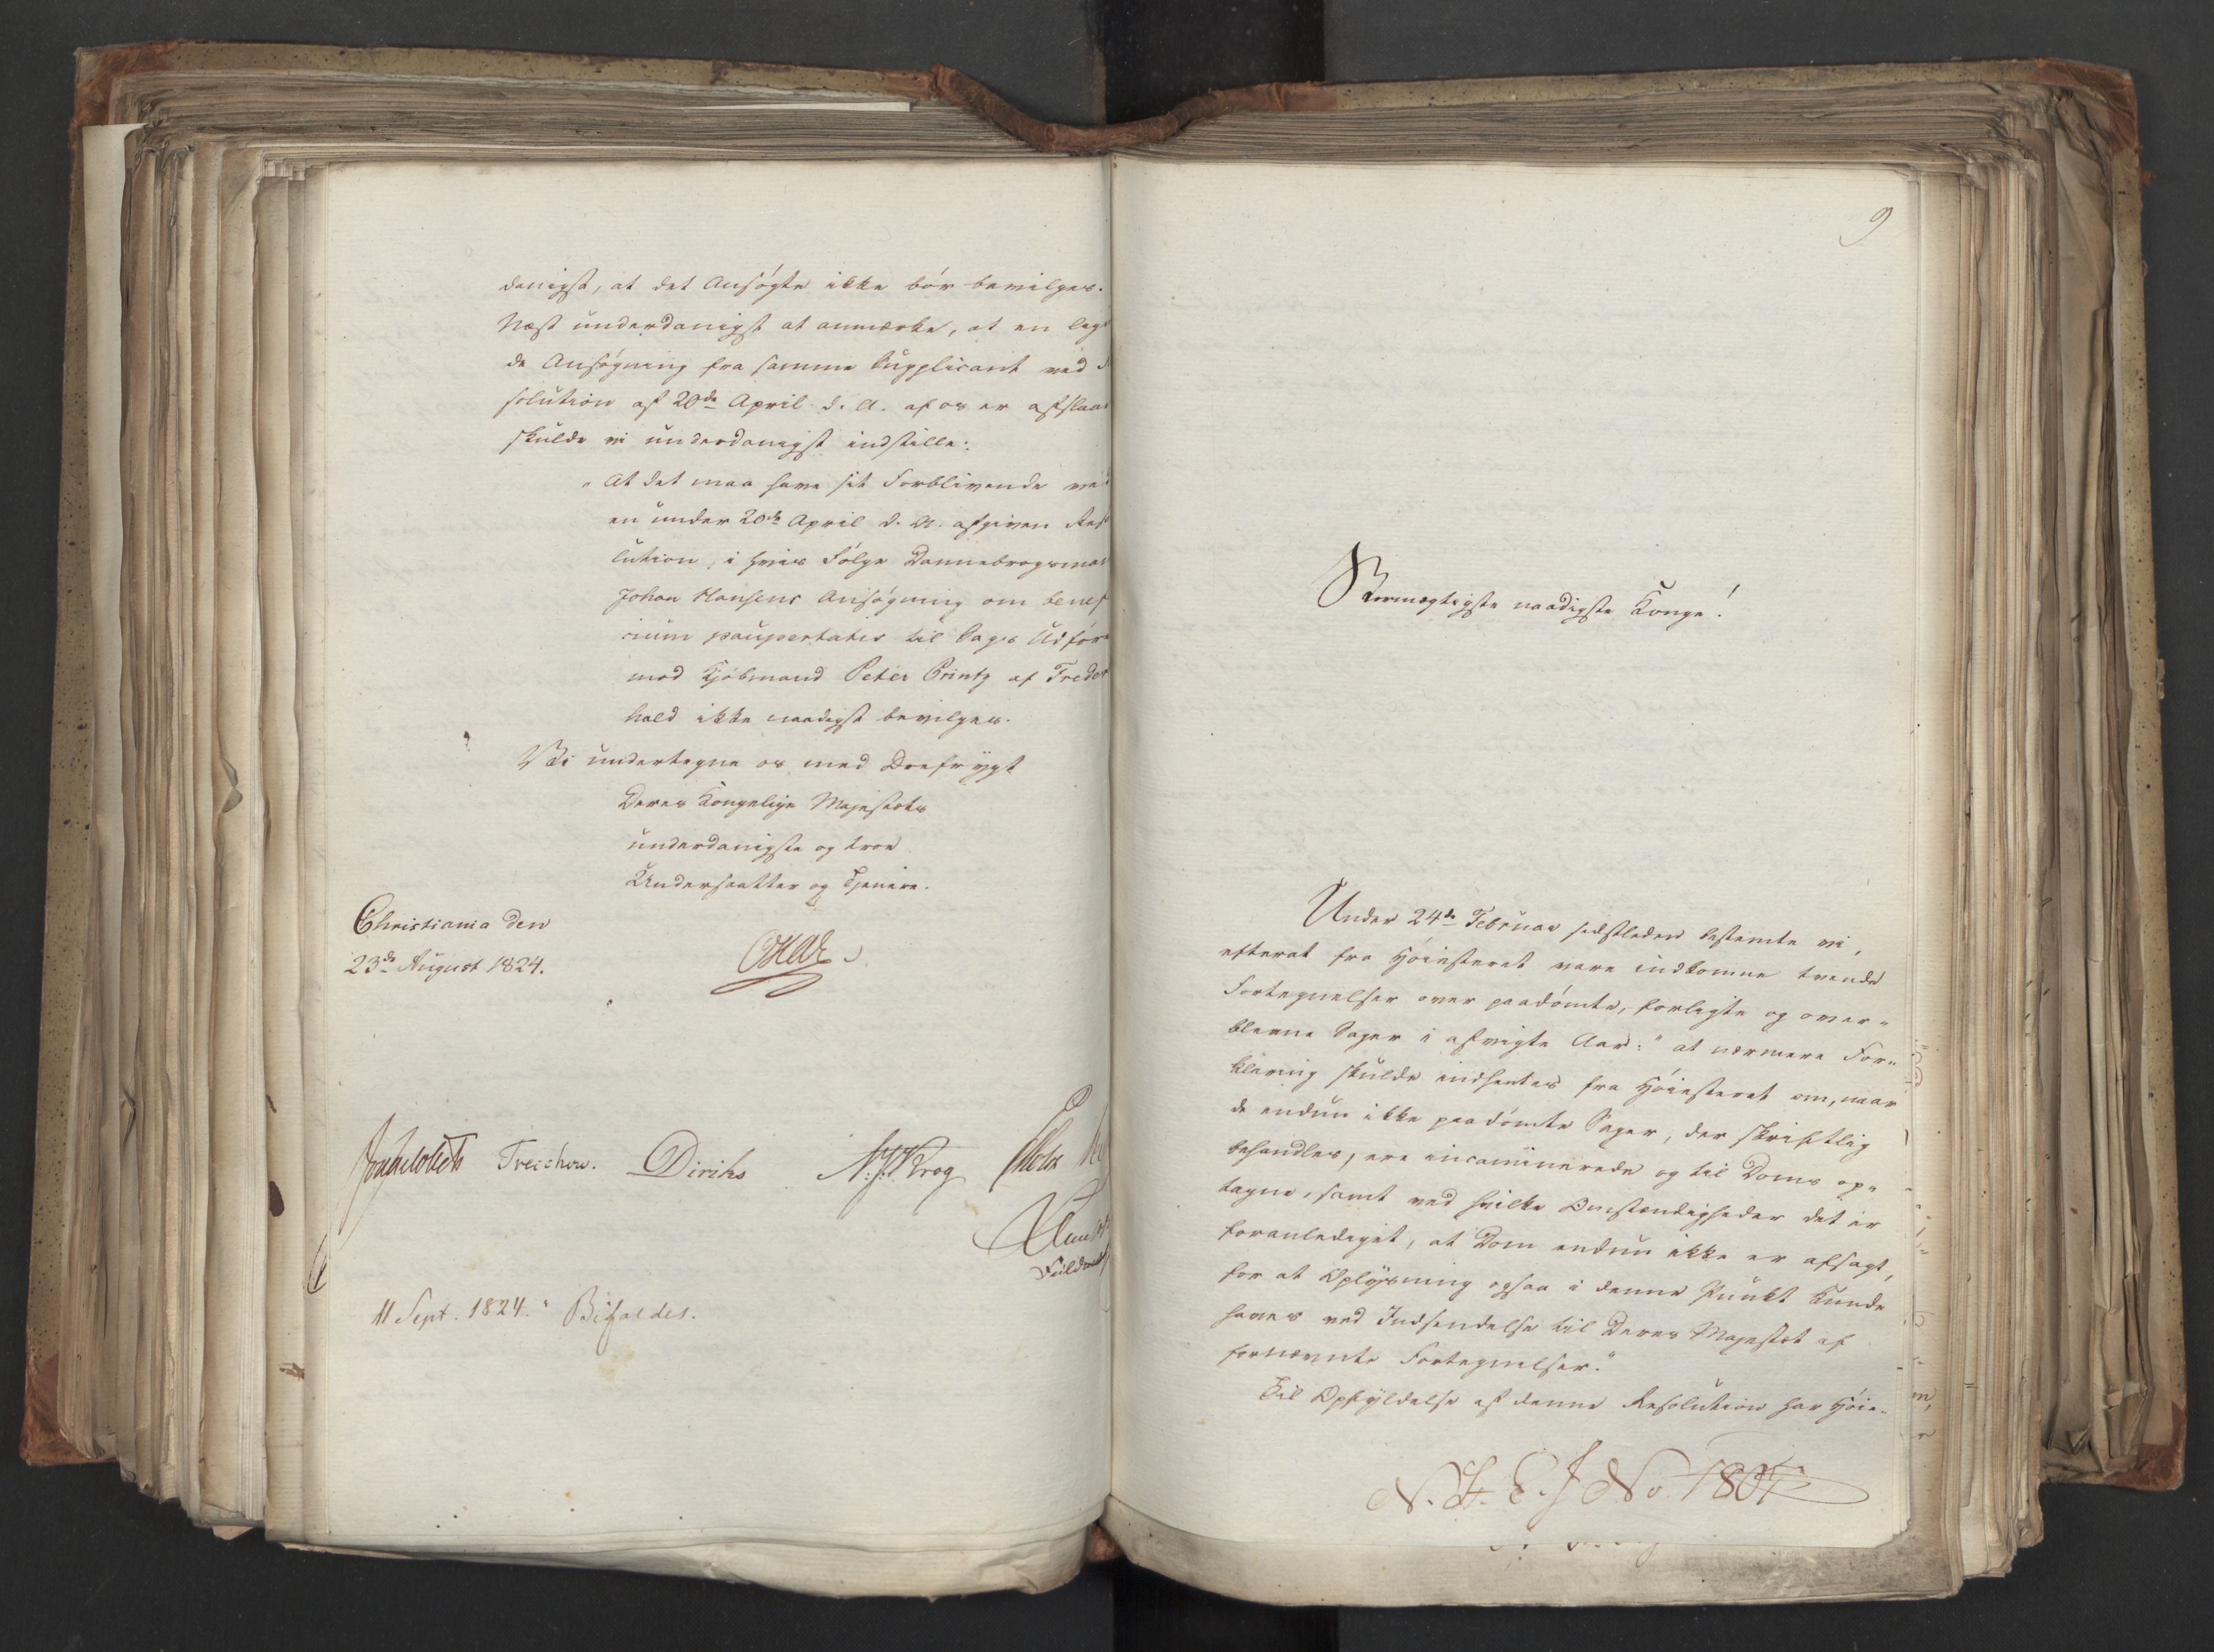 danigst, at det Ansøgte ikke bør bevilges.
Næst underdanigst at anmærke, at en lig
de Ansøgning fra samme Supplicant ved
solution af 20de April d. A. af os er afslaa
skulde vi underdanigst indstille:
"At det maa have sit Forblivende ved
en under 20de April d. A. afgiven Reso
lution, i hvis Følge Dannebrogsmand
Johan Hansens Ansøgning om benef
icium paupertatis til Sags Udfør
mod Kjøbmand Peter Printz af Freder
hald ikke naadigst bevilges.
Vi undertegne os med Ærefrygt
Deres Kongelige Majestæts
underdanigste og troe
Undersaatter og Tjenere.
Christiania den
23de August 1824.
Treschow. Diriks
Fuldmægt
11 Sept. 1824. " Bifaldes.
9
Stormægtigste naadigste Konge!
Under 24de Februar sidstleden bestemte vi,
efterat fra Høiesteret vare indkomne tvende
Fortegnelser over paadømte, forligte og over-
blevne Sager i afvigte Aar: "at nærmere For-
klaring skulde indhentes fra Høiesteret om, naar
de endnu ikke paadømte Sager, der skriftlig
behandles, ere incaminerede og til Doms op-
tagne, samt ved hvilke Omstændigheder det er
foranlediget, at Dom endnu ikke er afsagt,
for at Oplysning ogsaa i denne Punkt kunde
haves ved Indsendelse til Deres Majestæt af
fornævnte Fortegnelser."
Til Opfyldelse af denne Resolution har Høie-
No 1807